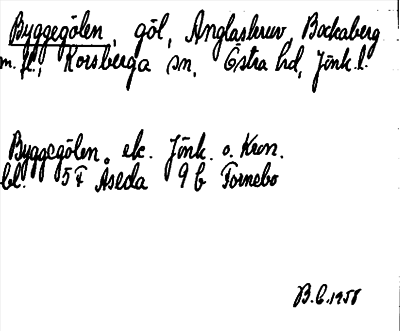 Byggegölen, göl, Anglaskruv, Bockaberg
m.fl., Korsberga sn, Östra hd, Jönk.l.
Byggegölen. ek. Jönk. o. Kron.
bl. 5F Åseda 9b Fornebo
B.C. 1958